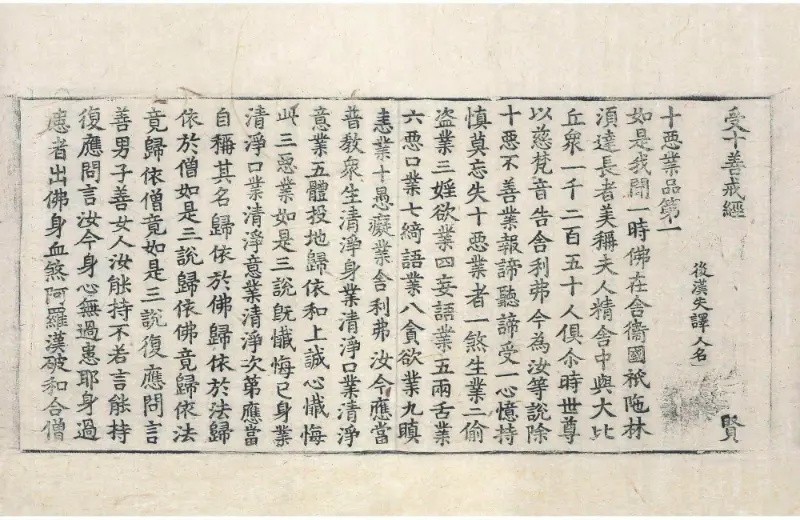 受十善戒經
賢
後漢失譯人名
十惡業品第一
如是我聞一時佛在舍衞國祇陁林
須達長者美稱夫人精舍中與大比
丘衆一千二百五十人俱尒時世尊
以慈梵音告舍利弗今為汝等說除
十惡不善業報諦聽諦受一心憶持
慎莫忘失十惡業者一煞生業二偷
盜業三婬欲業四妄語業五兩舌業
六惡口業七綺語業八貪欲業九瞋
恚業十愚癡業舍利弗汝今應當
普教衆生清淨身業清淨口業清淨
意業五體投地歸依和上誠心懺悔
此三惡業如是三說旣懺悔已身業
清淨口業清淨意業清淨次第應當
自稱其名歸依於佛歸依於法歸
依於僧如是三說歸依佛竟歸依法
竟歸依僧竟如是三說復應問言
善男子善女人汝能持不若言能持
復應問言汝今身心無過患耶身過
患者出佛身血煞阿羅漢破和合僧